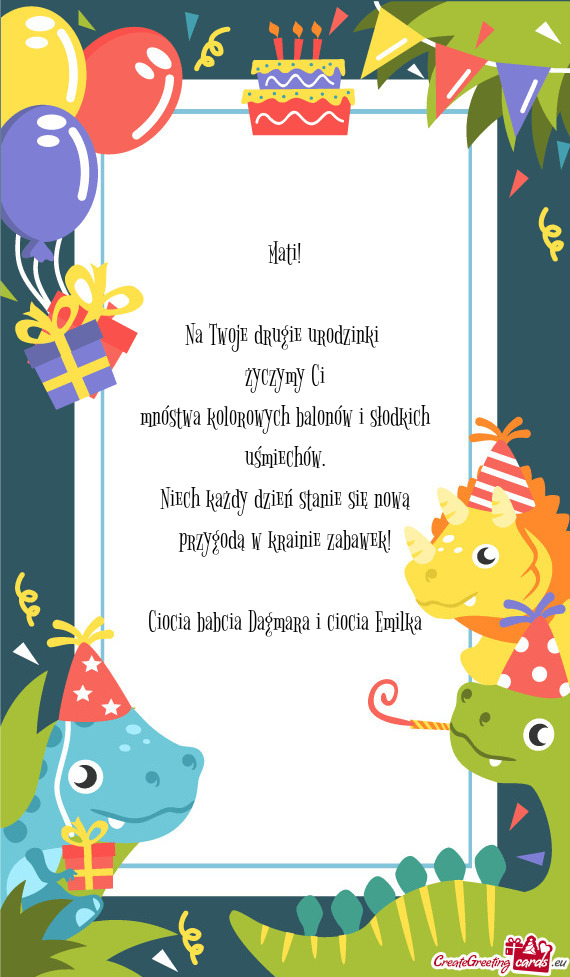 Mati!
Na Twoje drugie urodzinki
życzymy Ci
mnóstwa kolorowych balonów i słodkich
uśmiechów.
Niech każdy dzień stanie się nową
przygodą w krainie zabawek!
Ciocia babcia Dagmara i ciocia Emilka
CreateGreetingcards.eu